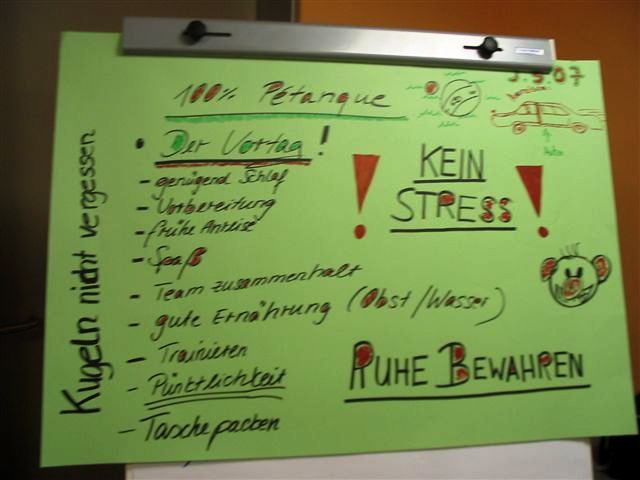 3.5.07
100% Pétanque
• Der Vortag!
- genügend Schlaf
- Vorbereitung
- frühe Anreise
- Spaß
- Team zusammenhalt
- gute Ernährung (Obst/Wasser)
- Trainieren
- Pünktlichkeit
- Tasche packen
Kugeln nicht vergessen
! KEIN !
STRESS
RUHE BEWAHREN